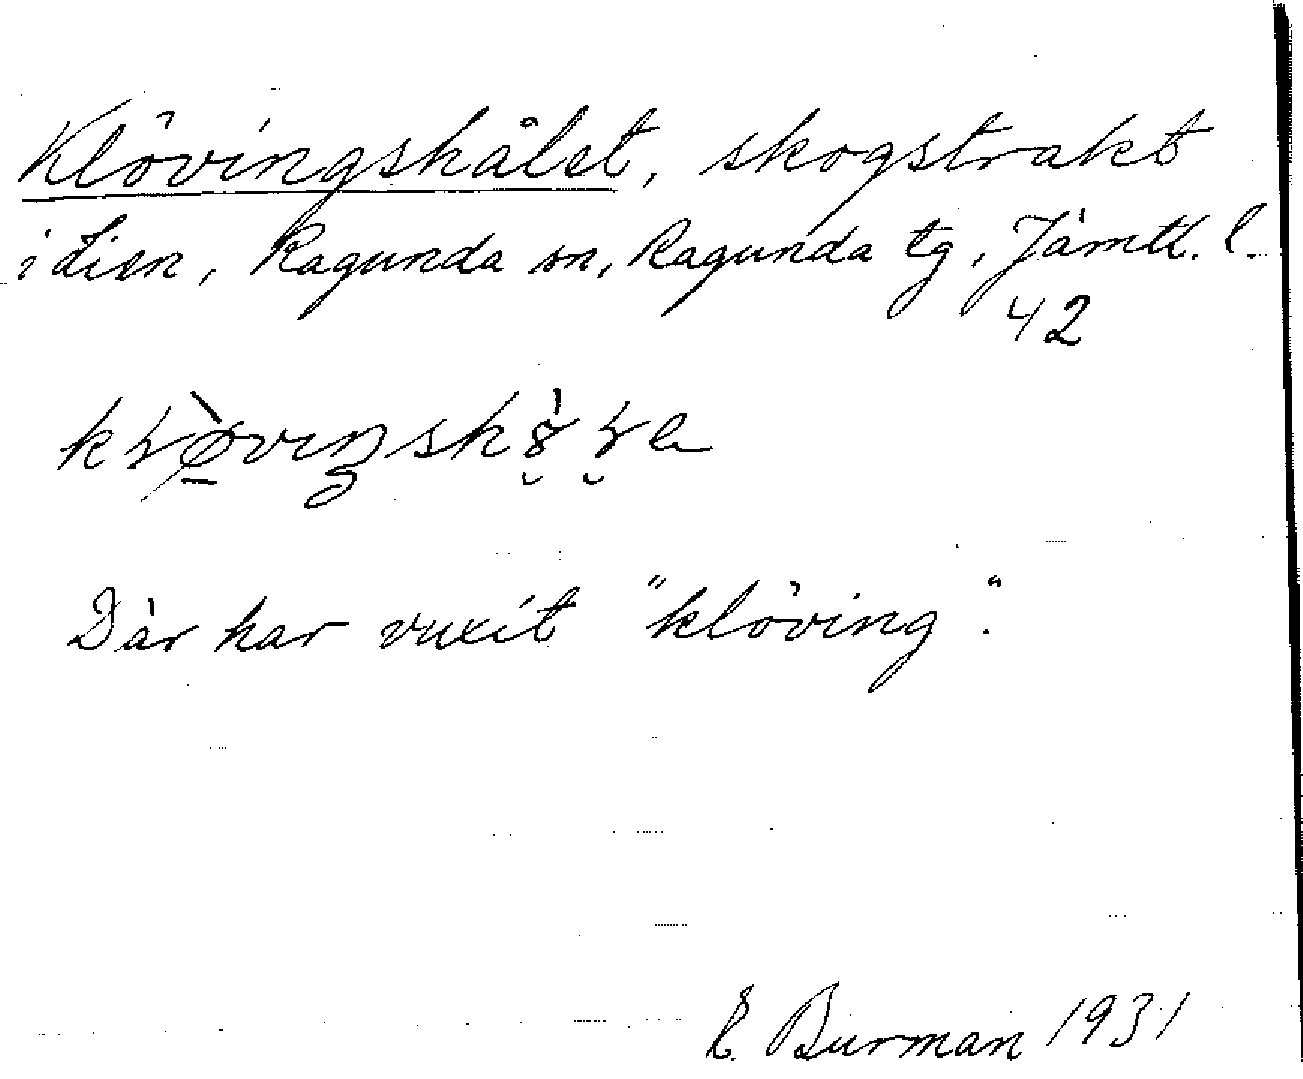 Klövingskålet, skogstrakt
i Lien, Ragunda sn, Ragunda tg, Jämtl. l.
42
Där har vuxit "klöving".
E. Burman 1931